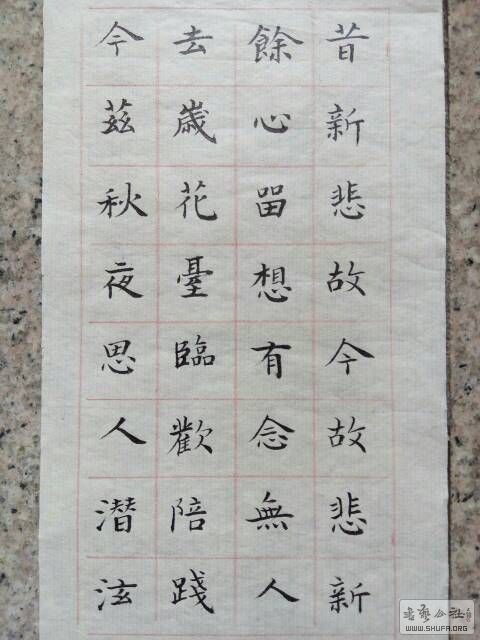 昔新悲故今故悲新
餘心留想有念無人
去歲花臺臨歡陪踐
今茲秋夜思人潛泫
书艺公社
WWW.SHUFA.ORG